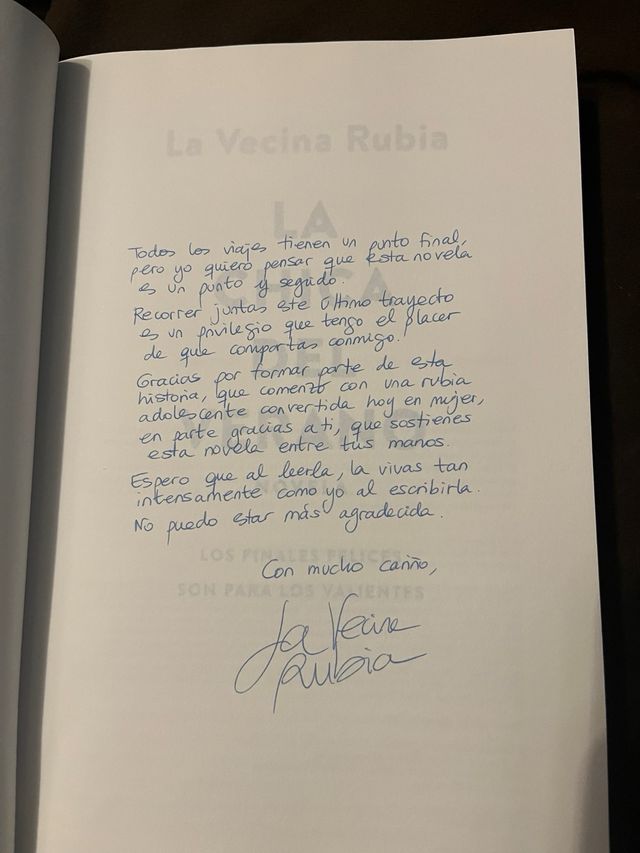 La Vecina Rubia
LA
CHICA
DEL
VERANO
NOVELA
LOS FINALES FELICES
SON PARA LOS VALIENTES
Todos los viajes tienen un punto final,
pero yo quiero pensar que esta novela
es un punto y seguido.
Recorrer juntas este último trayecto
es un privilegio que tengo el placer
de que compartas conmigo.
Gracias por formar parte de esta
historia, que comenzó con una rubia
adolescente convertida hoy en mujer,
en parte gracias a ti, que sostienes
esta novela entre tus manos.
Espero que al leerla, la vivas tan
intensamente como yo al escribirla.
No puedo estar más agradecida.
Con mucho cariño,
La Vecina
Rubia